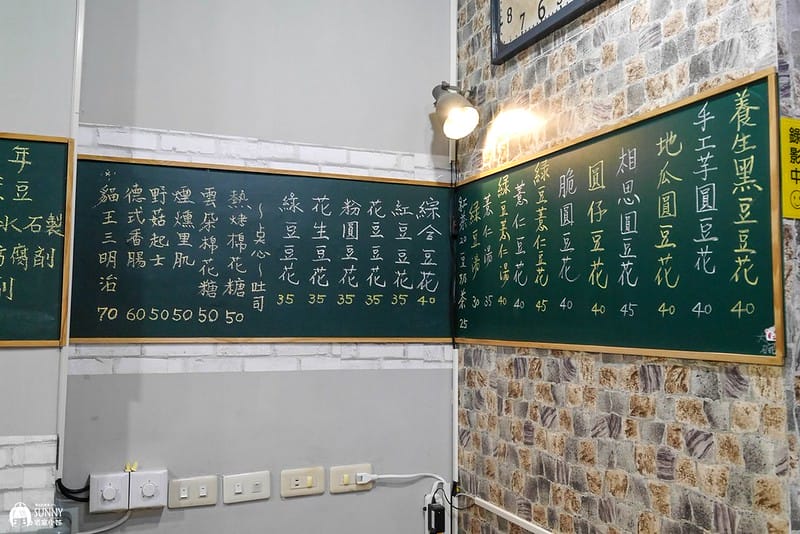 養生黑豆豆花 40
手工芋圓豆花 40
地瓜圓豆花 40
相思圓豆花 45
圓仔豆花 40
脆圓豆花 40
綠豆薏仁豆花 45
薏仁豆花 40
綠豆薏仁湯 40
薏仁湯 35
綠豆湯 30
25
綜合豆花 40
紅豆豆花 35
花豆豆花 35
粉圓豆花 35
花生豆花 35
綠豆豆花 35
～點心～吐司
熱烤棉花糖 50
雲朵棉花糖 50
煙燻里肌 50
野菇起士 50
德式香腸 60
貓王三明治 70
年
豆
水石製
防腐劑
劑
錄影中
8 7 6
SUNNY